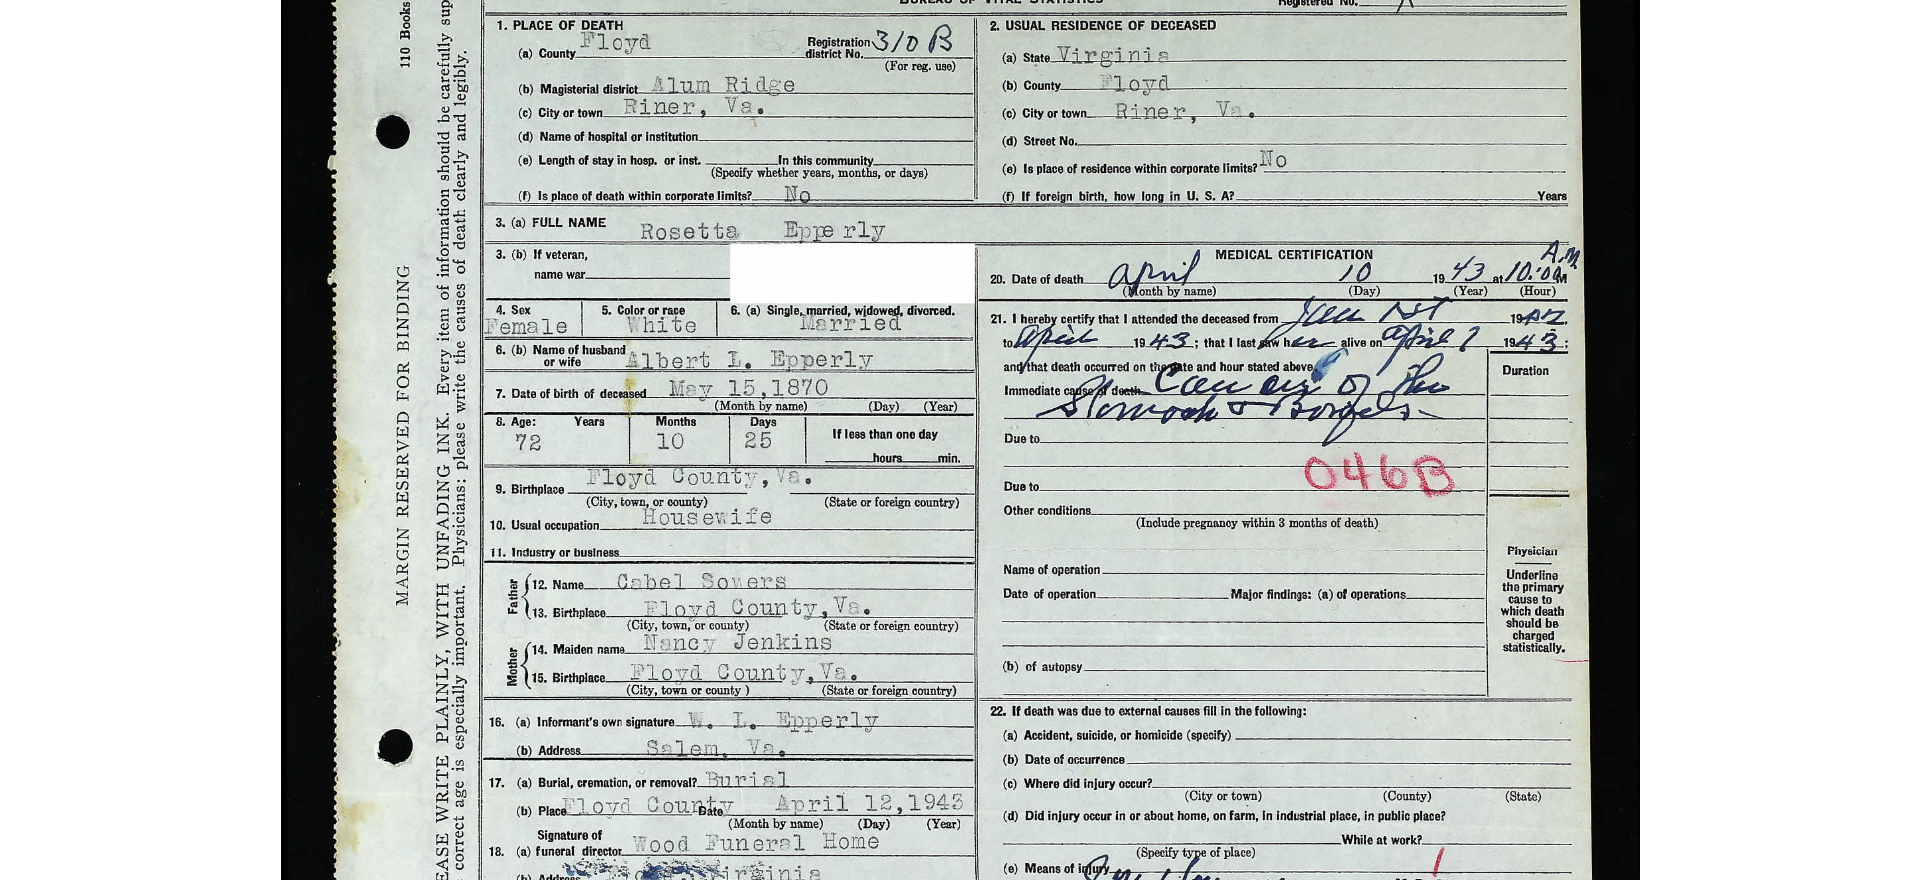 BUREAU OF VITAL STATISTICS
Registered No.
110 Books
MARGIN RESERVED FOR BINDING
EASE WRITE PLAINLY, WITH UNFADING INK. Every item of information should be carefully sup
correct age is especially important. Physicians; please write the causes of death clearly and legibly.
1. PLACE OF DEATH
(a) County Floyd Registration district No. 310 B
(For reg. use)
(b) Magisterial district Alum Ridge
(c) City or town Riner, Va.
(d) Name of hospital or institution
(e) Length of stay in hosp. or inst. In this community
(Specify whether years, months, or days)
(f) Is place of death within corporate limits? No
2. USUAL RESIDENCE OF DECEASED
(a) State Virginia
(b) County Floyd
(c) City or town Riner, Va.
(d) Street No.
(e) Is place of residence within corporate limits? No
(f) If foreign birth, how long in U. S. A.? Years
3. (a) FULL NAME Rosetta Epperly
3. (b) If veteran,
name war
4. Sex Female
5. Color or race White
6. (a) Single, married, widowed, divorced. Married
6. (b) Name of husband or wife Albert L. Epperly
7. Date of birth of deceased May 15,1870
(Month by name) (Day) (Year)
8. Age: Years Months Days If less than one day
72 10 25 hours min.
9. Birthplace Floyd County, Va.
(City, town, or county) (State or foreign country)
10. Usual occupation Housewife
11. Industry or business
Father
12. Name Cabel Sowers
13. Birthplace Floyd County, Va.
(City, town, or county) (State or foreign country)
Mother
14. Maiden name Nancy Jenkins
15. Birthplace Floyd County, Va.
(City, town or county ) (State or foreign country)
16. (a) Informant's own signature W. L. Epperly
(b) Address Salem, Va.
17. (a) Burial, cremation, or removal? Burial
(b) Place Floyd County Date April 12,1943
(Month by name) (Day) (Year)
18. (a) Signature of funeral director Wood Funeral Home
(b) Address Virginia
MEDICAL CERTIFICATION
20. Date of death April 10 1943 at 10:00 A.M. M
(Month by name) (Day) (Year) (Hour)
21. I hereby certify that I attended the deceased from Jan 1st 1942
to April 1943; that I last saw her alive on April 7 1943:
and that death occurred on the date and hour stated above
Duration
Immediate cause of death Cancer of the
Stomach & Bowels
Due to
046B
Due to
Other conditions
(Include pregnancy within 3 months of death)
Name of operation
Date of operation Major findings: (a) of operations
(b) of autopsy
Physician
Underline
the primary
cause to
which death
should be
charged
statistically.
22. If death was due to external causes fill in the following:
(a) Accident, suicide, or homicide (specify)
(b) Date of occurrence
(c) Where did injury occur?
(City or town) (County) (State)
(d) Did injury occur in or about home, on farm, in industrial place, in public place?
While at work?
(Specify type of place)
(e) Means of injury